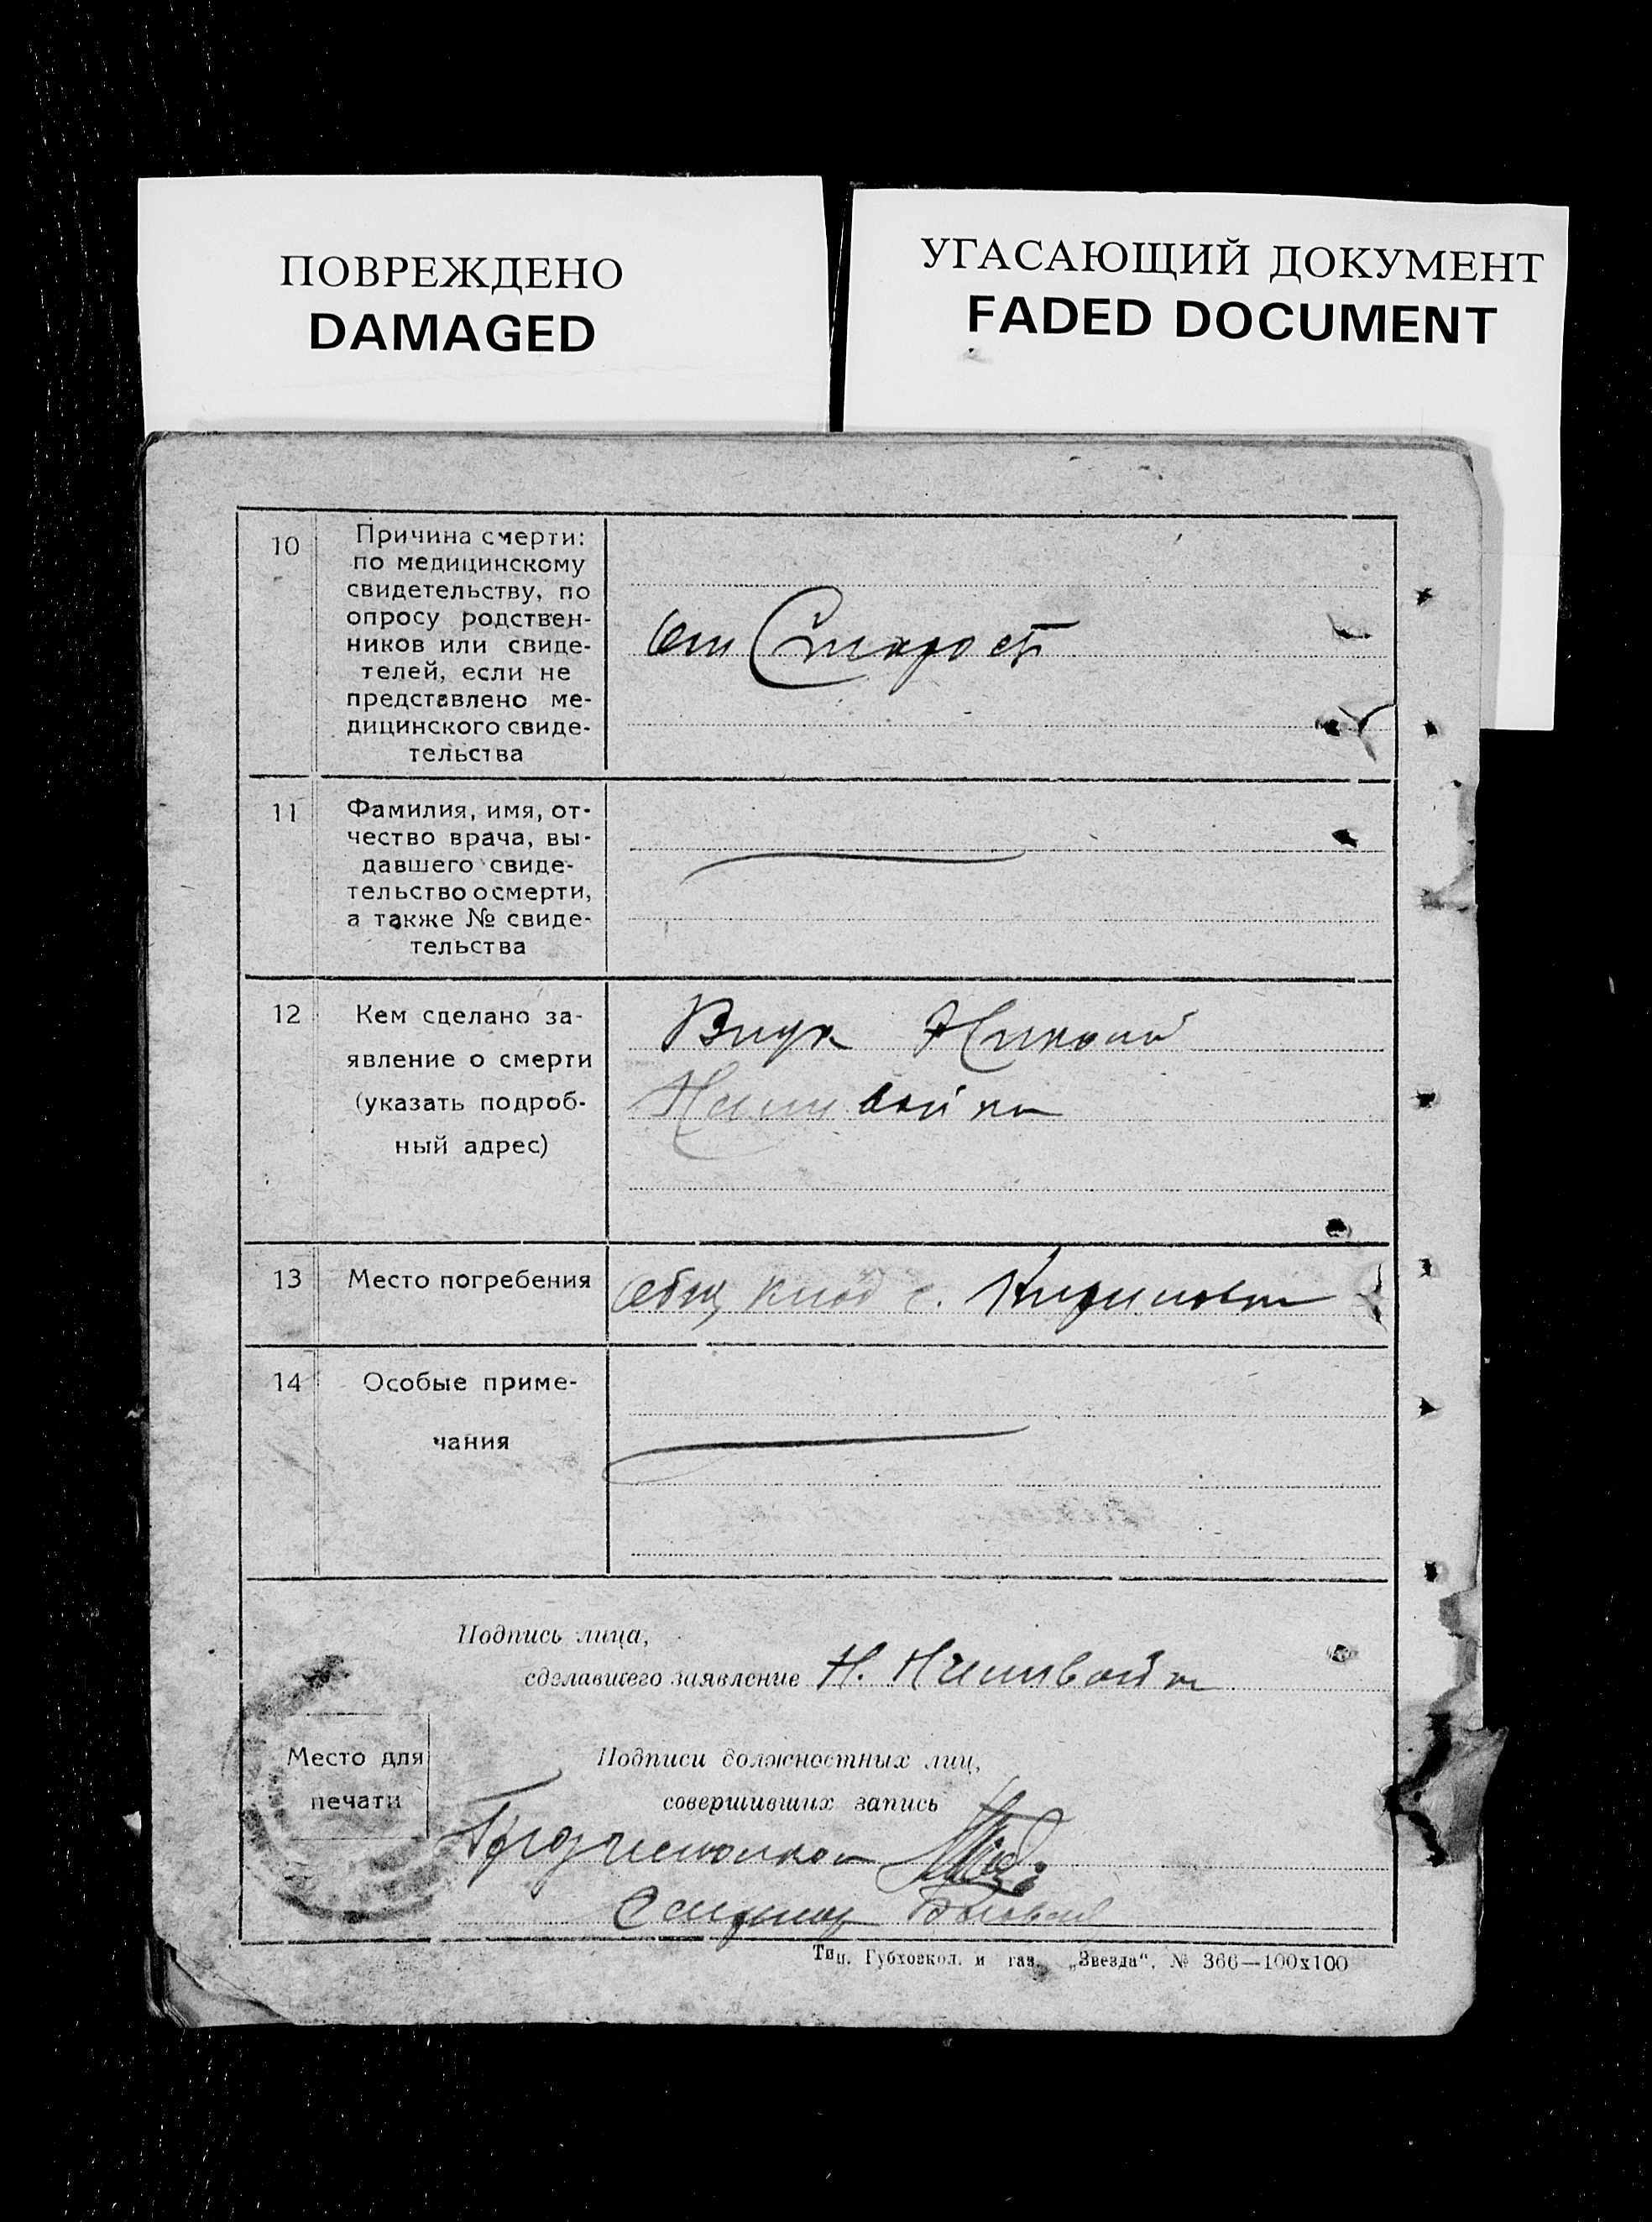 ПОВРЕЖДЕНО
DAMAGED
УГАСАЮЩИЙ ДОКУМЕНТ
FADED DOCUMENT
10
Причина смерти:
по медицинскому
свидетельству, по
опросу родствен-
ников или свиде-
телей, если не
представлено ме-
дицинского свиде-
тельства
от Старости
11
Фамилия, имя, от-
чество врача, вы-
давшего свиде-
тельство о смерти,
а также № свиде-
тельства
12
Кем сделано за-
явление о смерти
(указать подроб-
ный адрес)
13
Место погребения
общ клад с.
14
Особые приме-
чания
Подпись лица,
сделавшего заявление Н.
Место для
печати
Подписи должностных лиц,
совершивших запись
Тип. Губхозкол. и газ. „Звезда“. № 366—100х100